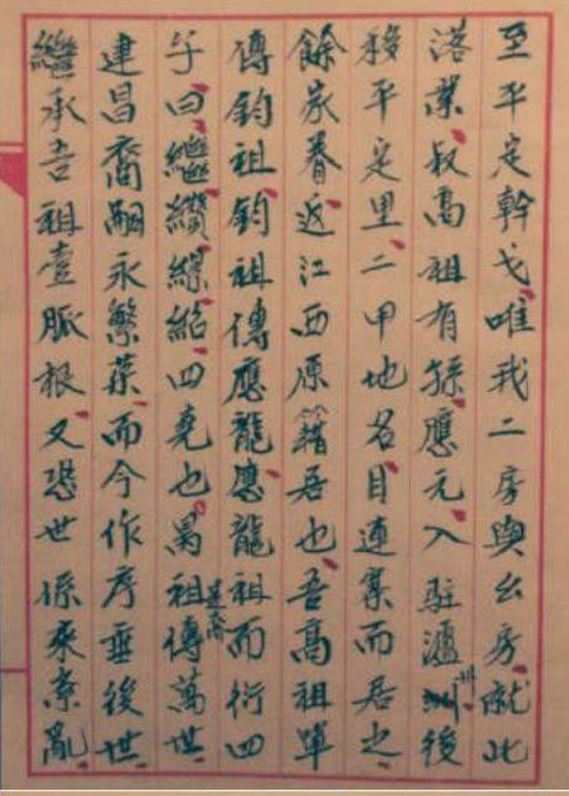 至平定幹戈唯我二房與幺房就此
落業叔高祖有孫應元入駐瀘州後
移平定里二甲地名目連寨而居之
餘家眷返江西原籍居也吾高祖單
傳鈞祖鈞祖傳應龍應龍祖而衍四
子曰繼纘紹四堯也祖傳萬世
建昌裔嗣永繁榮而今作序垂後世
繼承吾祖壹脈根又恐世係來紊亂